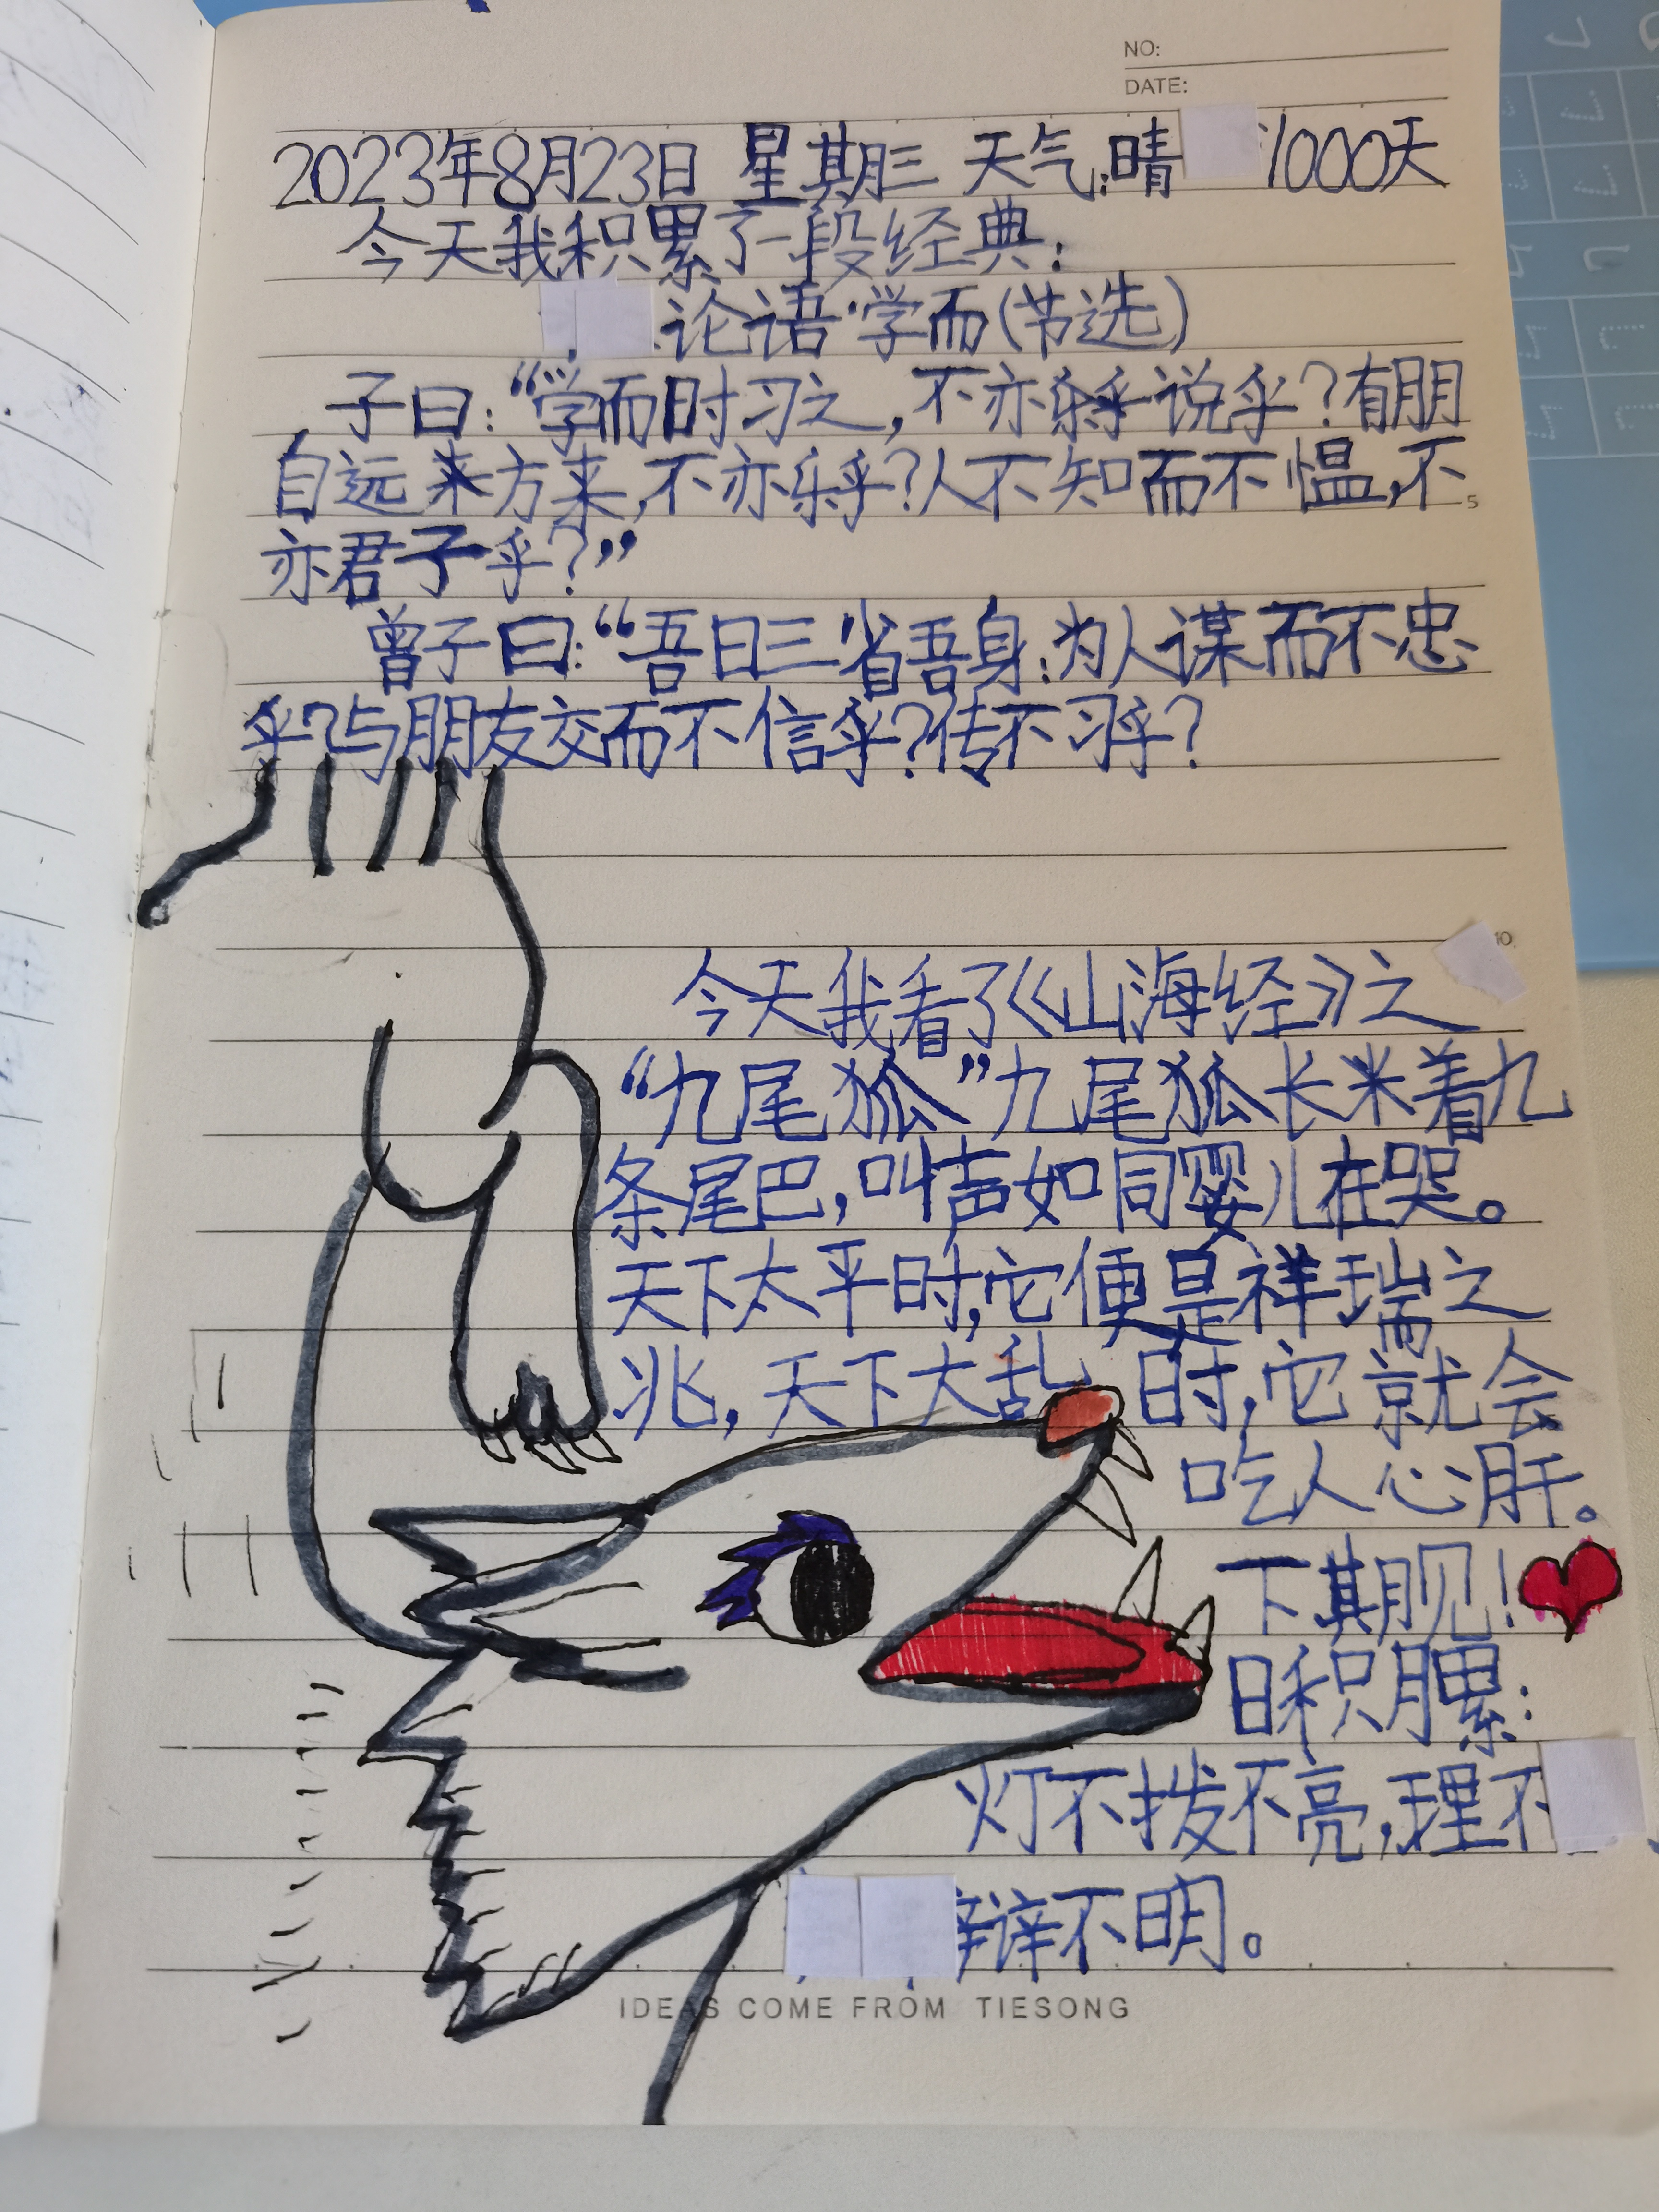 NO:
DATE:
2023年8月23日 星期三 天气:晴 1000天
今天我积累了一段经典:
论语·学而(节选)
子曰:“学而时习之,不亦说乎?有朋
自远方来,不亦乐乎?人不知而不愠,不
5
亦君子乎?”
曾子曰:“吾日三省吾身:为人谋而不忠
乎?与朋友交而不信乎?传不习乎?
10
今天我看了《山海经》之
“九尾狐”九尾狐长着九
条尾巴,叫声如同婴儿在哭。
天下太平时,它便是祥瑞之
兆,天下大乱时,它就会
吃人心肝。
下期见!
日积月累:
灯不拨不亮,理不
辩不明。
IDEAS COME FROM TIESONG